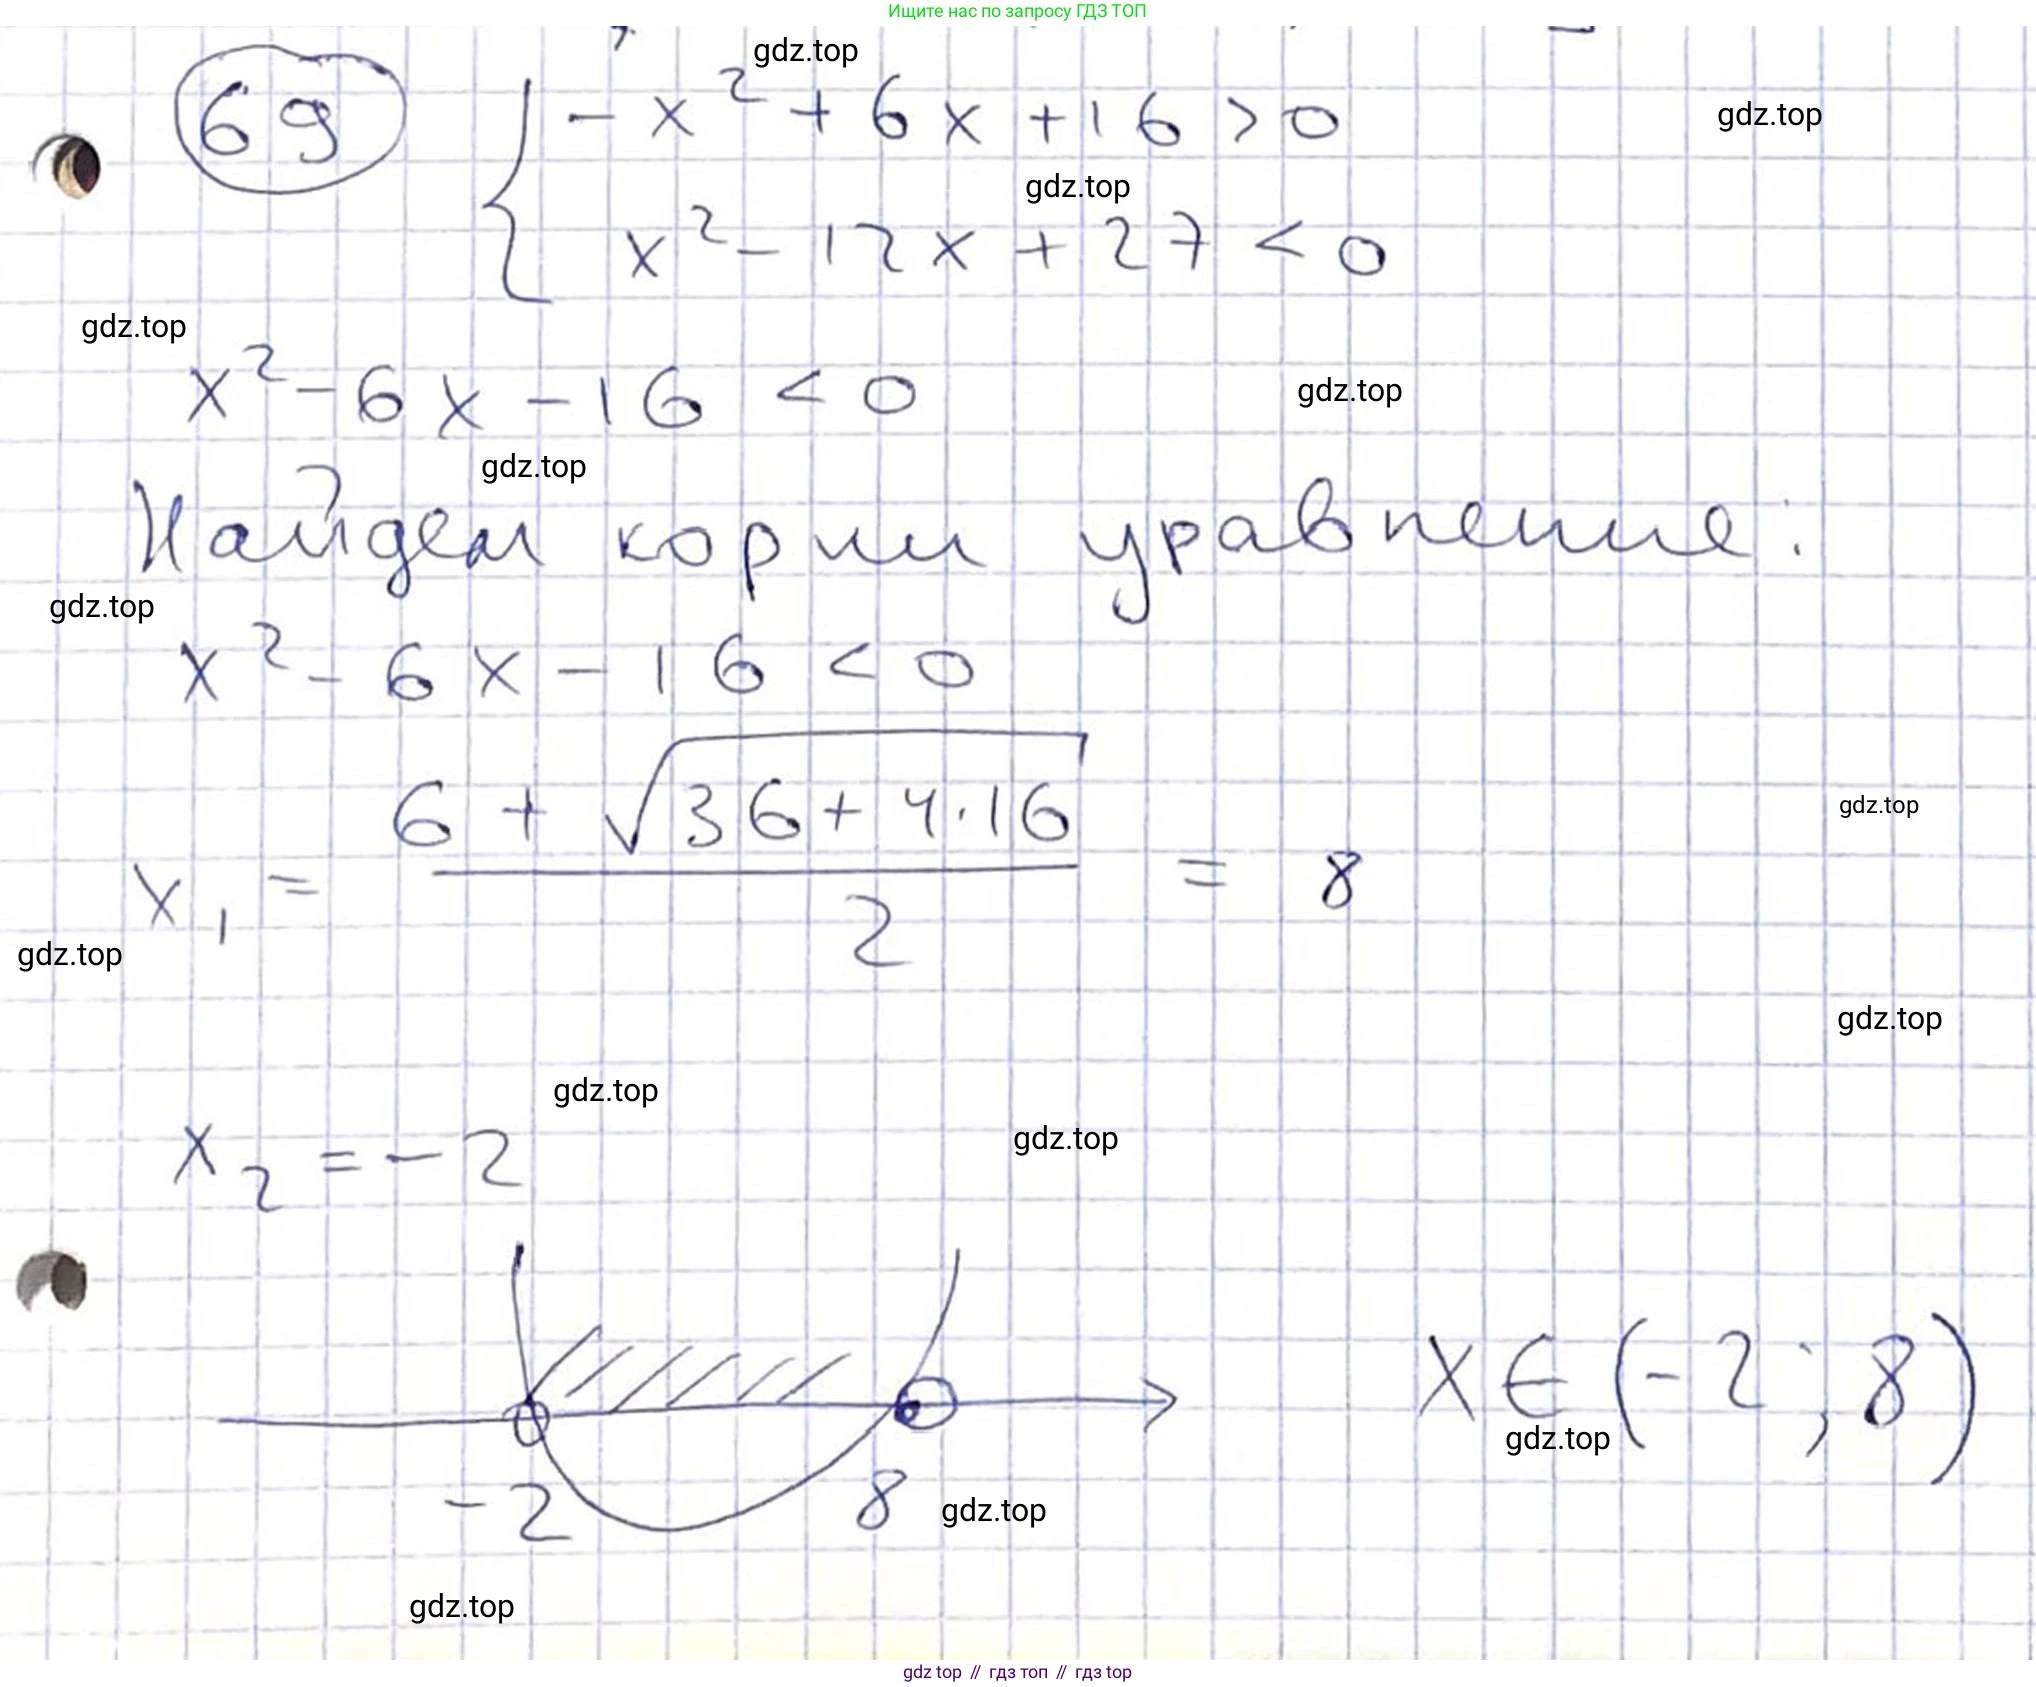 Ищите нас по запросу ГДЗ ТОП
gdz.top
69 { -x² + 6x + 16 > 0
gdz.top
gdz.top
x² - 12x + 27 < 0
gdz.top
x² - 6x - 16 < 0
gdz.top
gdz.top
Найдем корни уравнение:
gdz.top
x² - 6x - 16 < 0
x₁ = (6 + √(36 + 4·16)) / 2 = 8
gdz.top
gdz.top
gdz.top
gdz.top
gdz.top
x₂ = -2
x ∈ (-2; 8)
gdz.top
-2 8
gdz.top
gdz.top
gdz top // гдз топ // гдз top